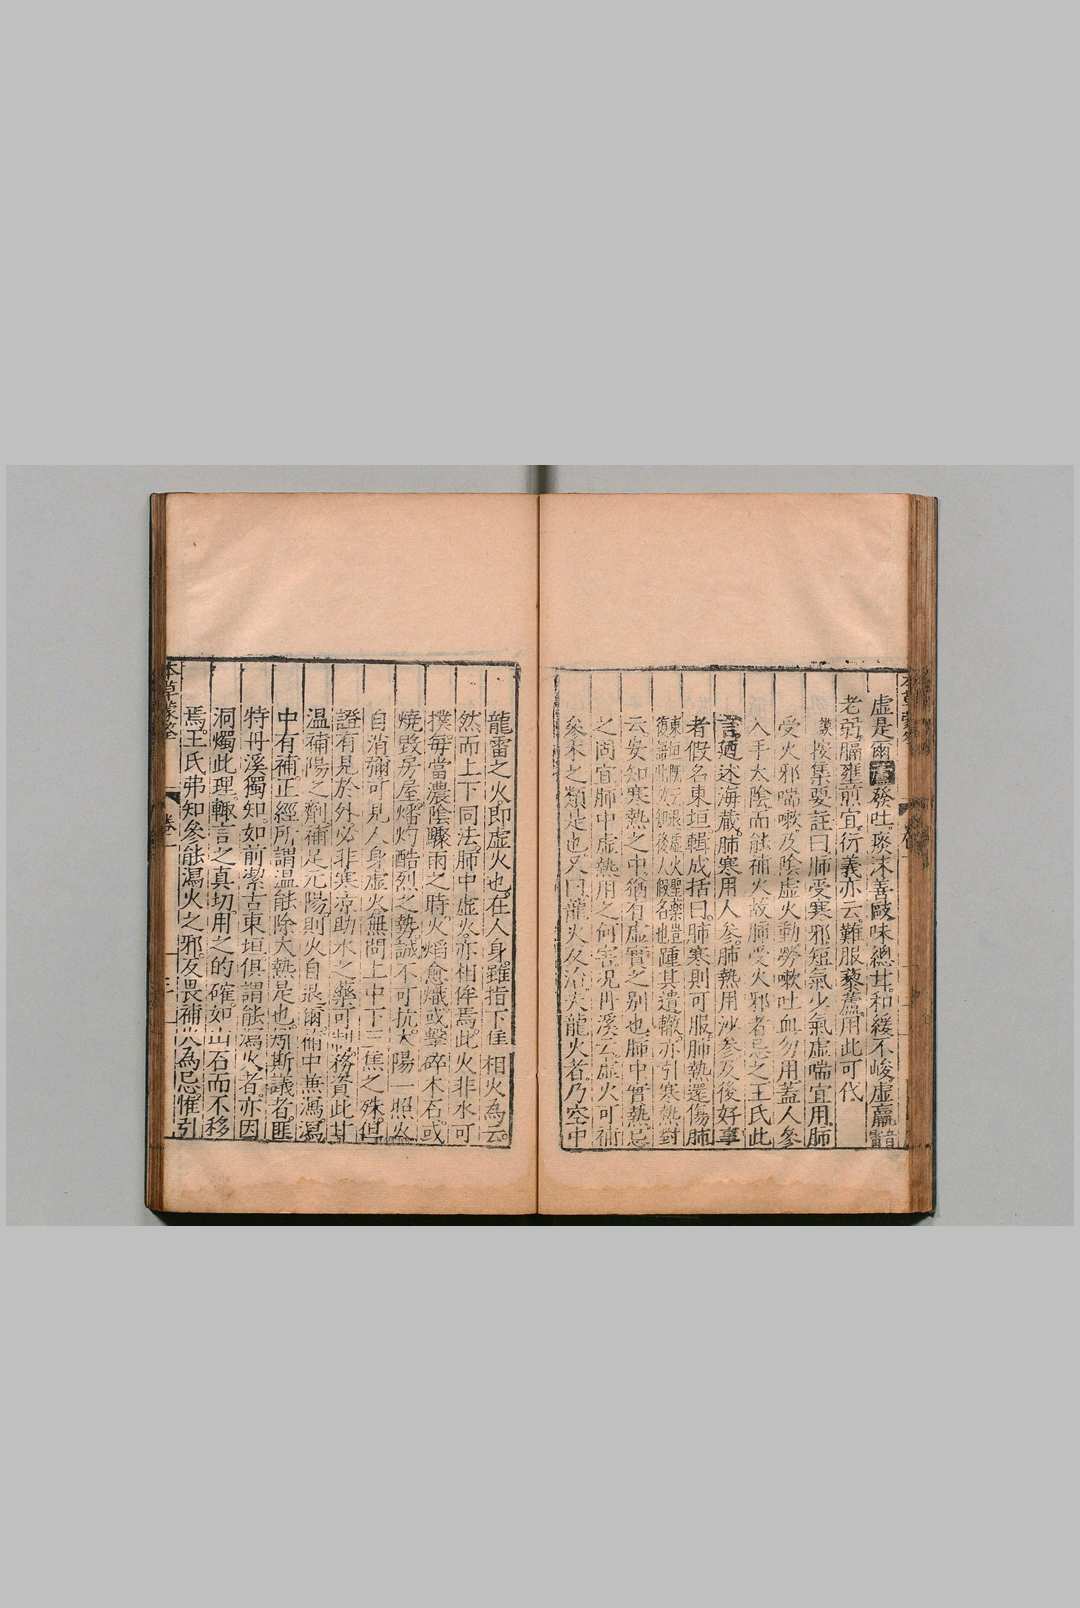 虛是爾蘆發吐痰沫善哉味總甘和緩不峻虛羸
老弱膈壅煎宜衍義亦云難服藜蘆用此可代
謨按集要註曰肺受寒邪短氣少氣虛喘宜用肺
受火邪喘嗽及陰虛火動勞嗽吐血勿用蓋人參
入手太陰而能補火故肺受火邪者忌之王氏此
言迺述海藏肺寒用人參肺熱用沙參及後好事
者假名東垣輯成括曰肺寒則可服肺熱還傷肺
東垣既云瀉虛火聖藥豈
復語此好事後人假名也踵其遺轍亦引寒熱對
云安知寒熱之中猶有虛實之別也肺中實熱忌
之固宜肺中虛熱用之何害況丹溪云虛火可補
參朮之類是也又曰龍火反治夫龍火者乃空中
龍雷之火即虛火也在人身雖指下焦相火為云
然而上下同法肺中虛火亦相侔焉此火非水可
撲每當濃陰驟雨之時火焰愈熾或擊碎木石或
燒毀房屋燔灼酷烈之勢誠不可抗太陽一照火
自消彌可見人身虛火無問上中下三焦之殊但
證有見於外必非寒涼助水之藥可制務資此甘
溫補陽之劑補足元陽則火自退爾補中兼瀉瀉
中有補正經所謂溫能除大熱是也引斯議者匪
特丹溪獨知如前潔古東垣俱謂能瀉火者亦因
洞燭此理輙言之真切用之的確如山石而不移
焉王氏弗知參能瀉火之邪反畏補火為忌惟引
本草蒙筌 卷一 三